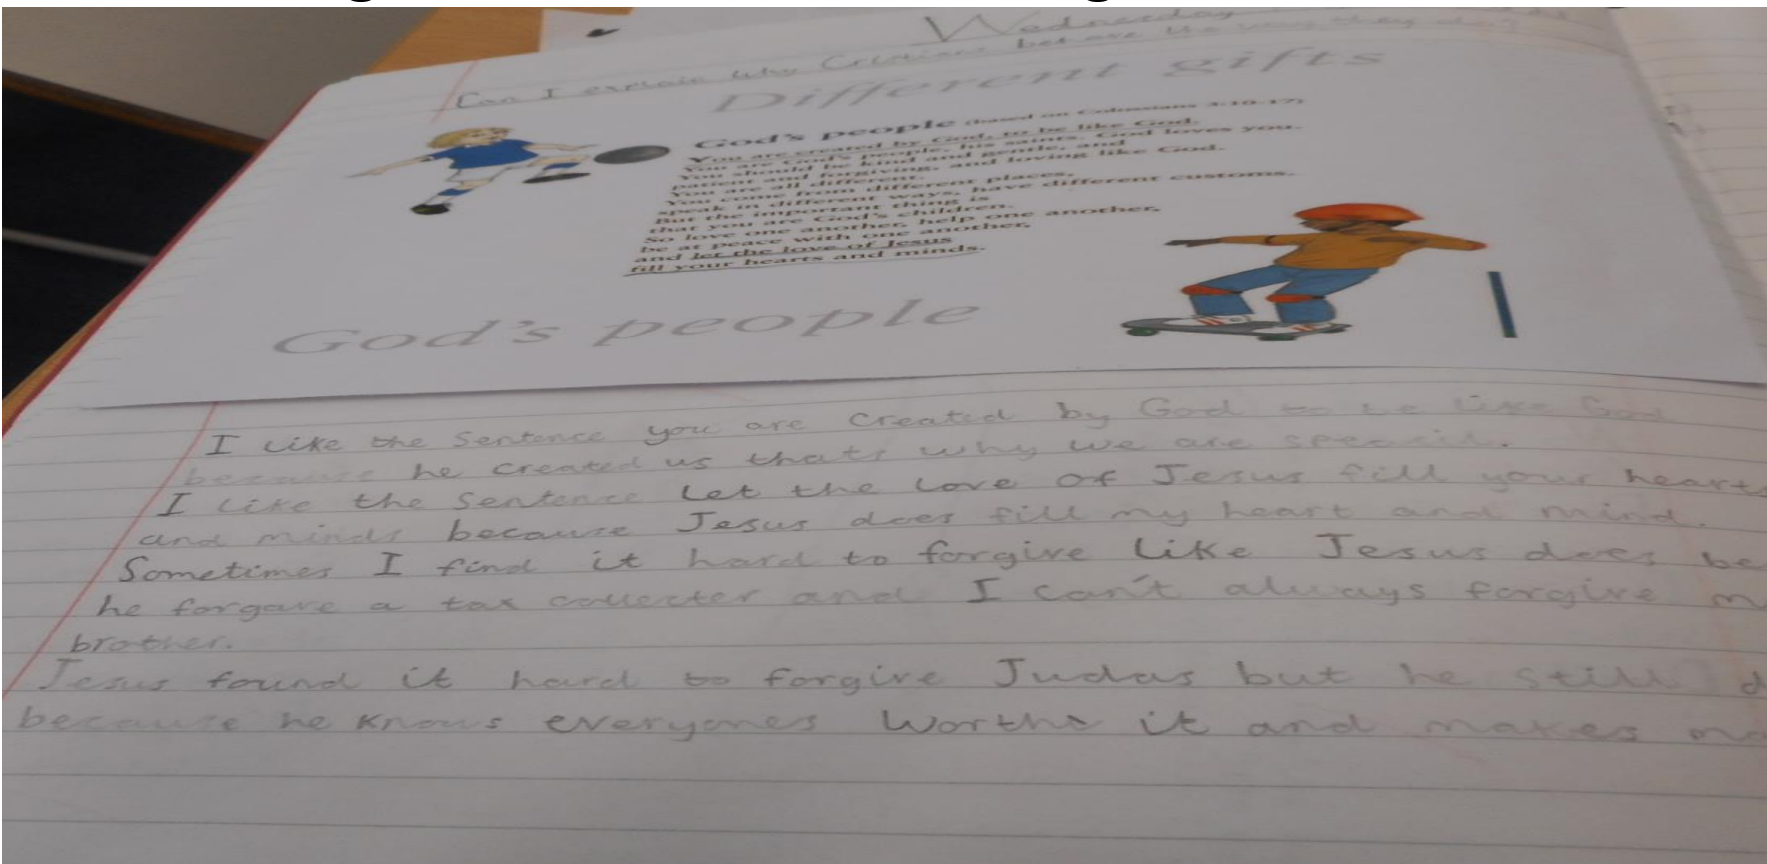 Wednesday
Can I explain why Cristians behave the way they do?
Different gifts
God's people (based on Colossians 3:10-17)
You are created by God, to be like God.
You are God's people, his saints. God loves you.
You should be kind and gentle, and
patient and forgiving, and loving like God.
You are all different.
You come from different places,
speak in different ways, have different customs.
But the important thing is
that you are God's children.
So love one another, help one another,
be at peace with one another,
and let the love of Jesus
fill your hearts and minds.
God's people
I like the sentence you are created by God to be like God
because he created us thats why we are specail.
I like the sentence Let the love of Jesus fill your hearts
and minds because Jesus does fill my heart and mind.
Sometimes I find it hard to forgive like Jesus does be
he forgave a tax collecter and I can't always forgive m
brother.
Jesus found it hard to forgive Judas but he still d
because he knows everyones worth it and makes